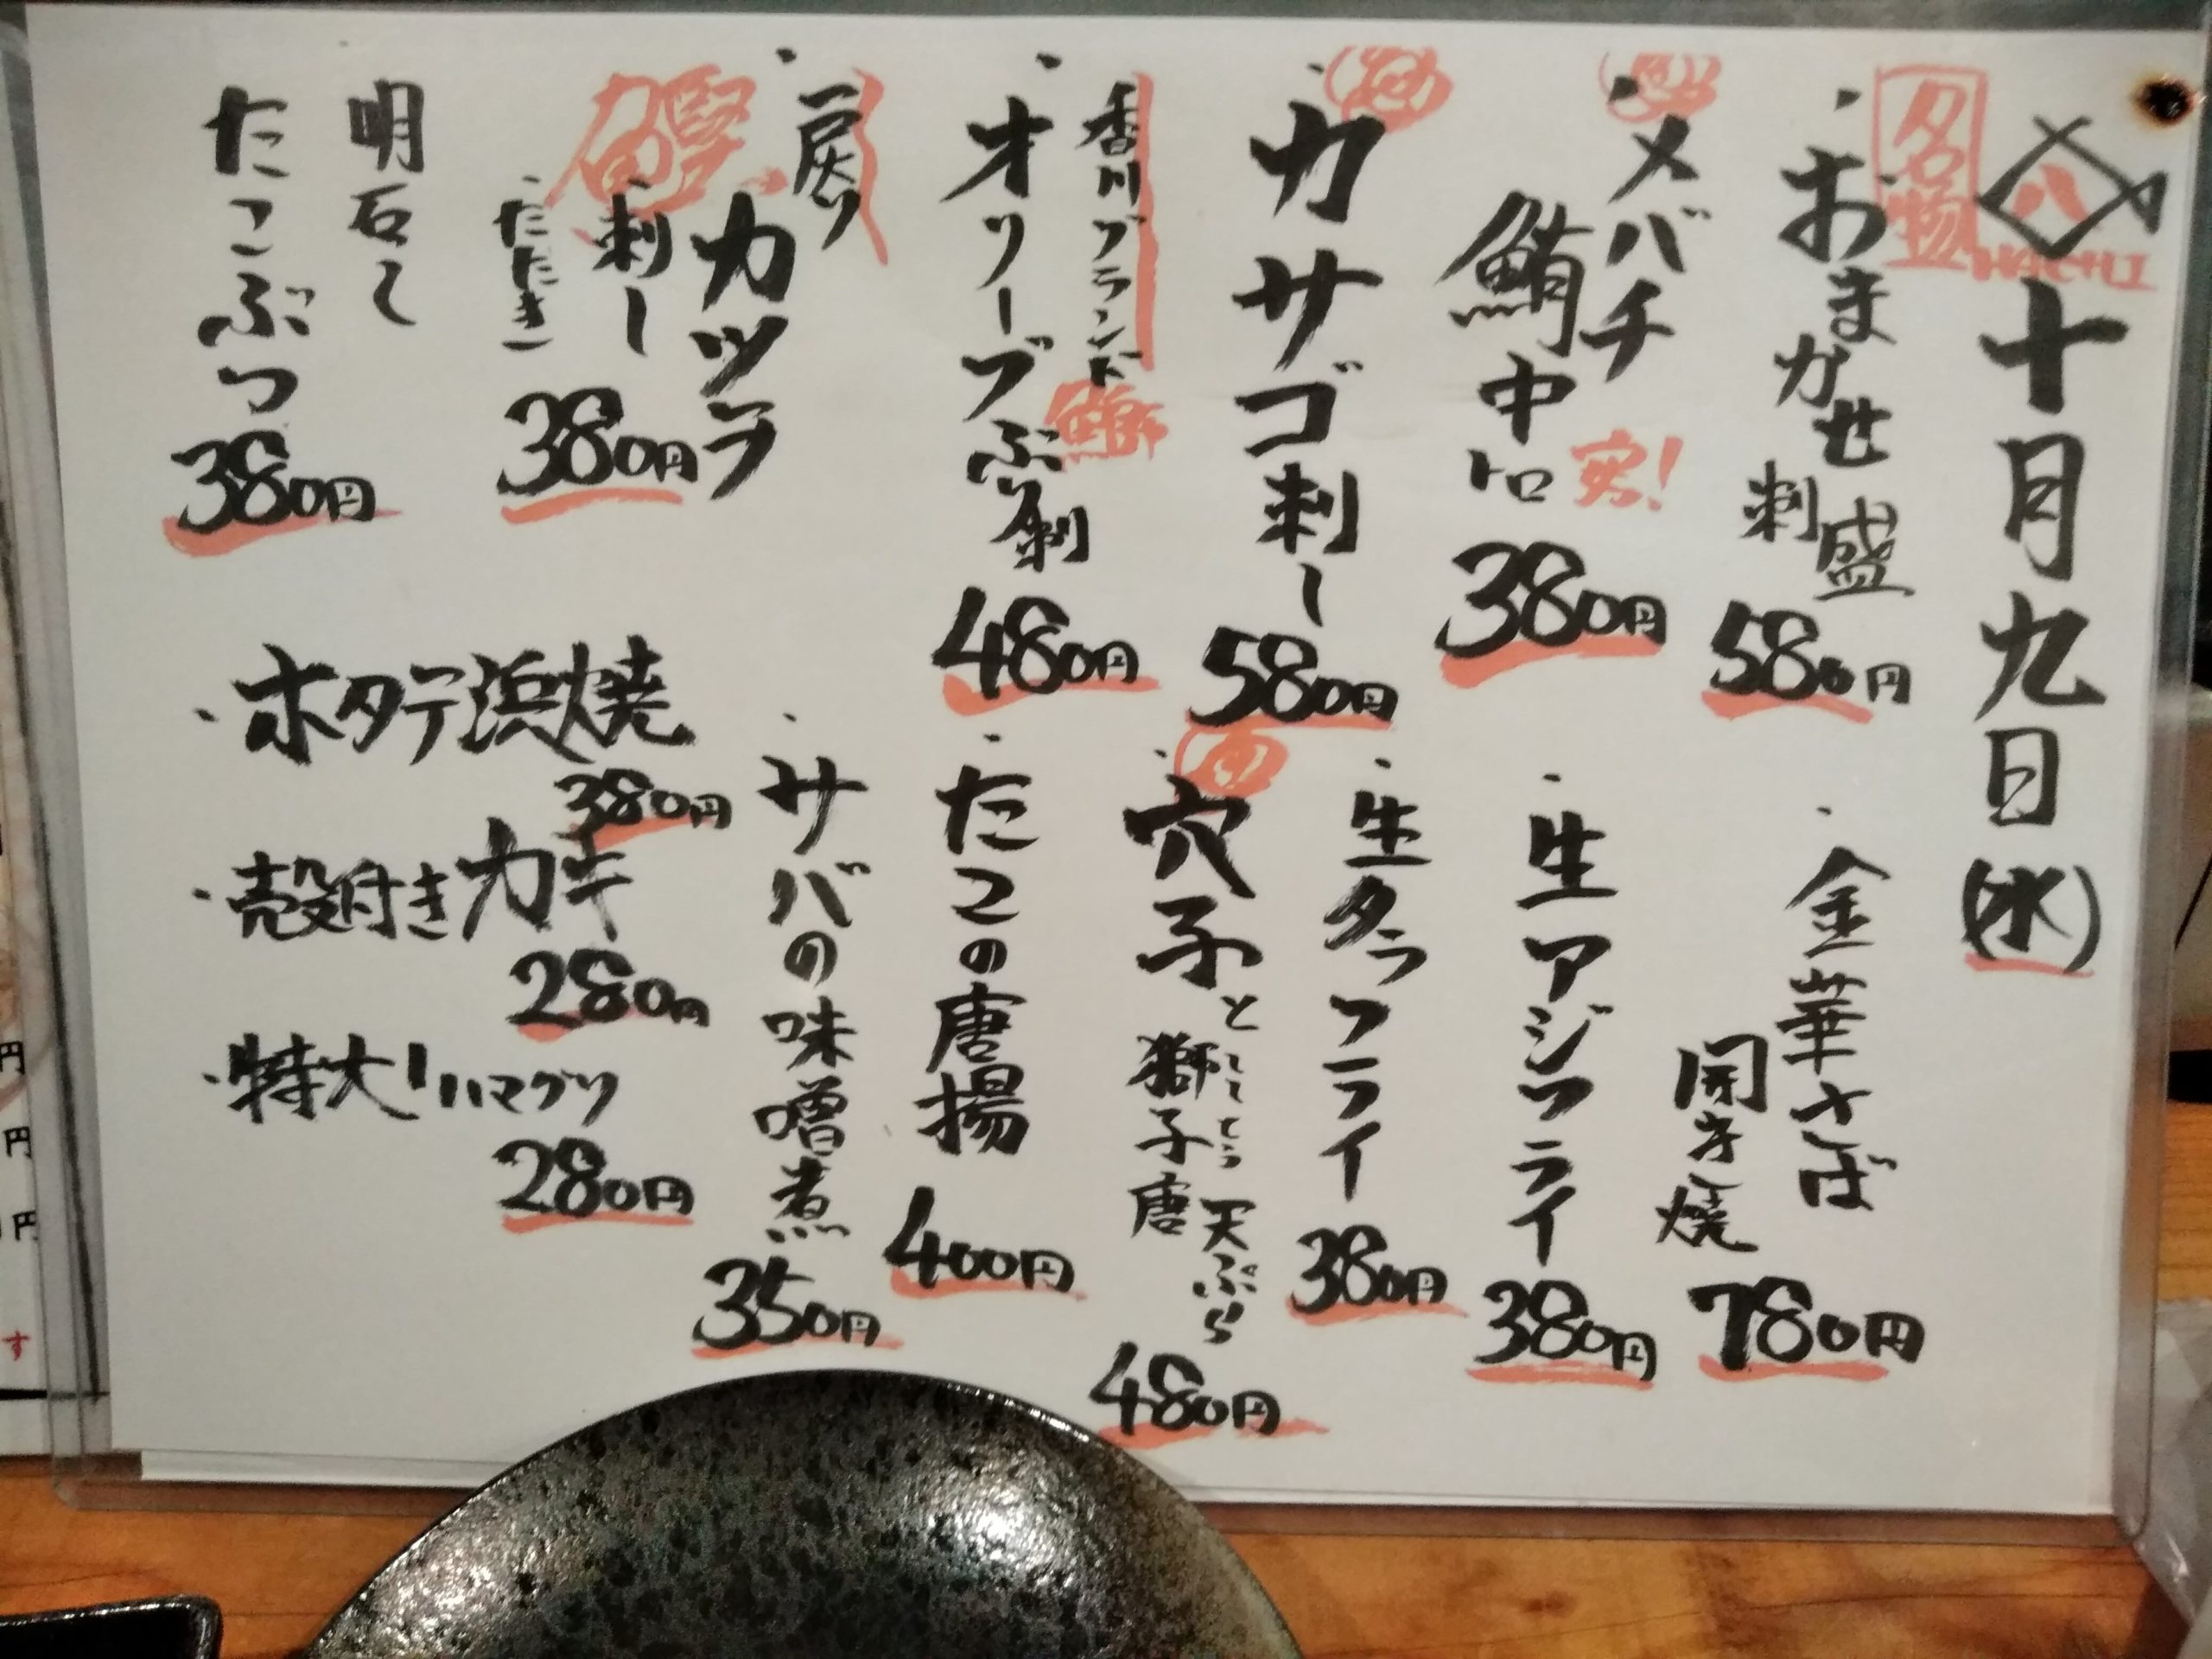 八
HACHI
十月九日(水)
名物
・おまかせ刺盛
580円
・メバチ
鮪中トロ
実!
380円
・カサゴ刺し
580円
香川ブランド
・オリーブぶり刺
480円
・戻り
カツヲ
刺し
・たたき
380円
明石し
たこぶつ
380円
・金華さば
開き焼
780円
・生アジフライ
380円
・生タラフライ
380円
・穴子と
獅子唐
ししとう
天ぷら
480円
・たこの唐揚
400円
・サバの味噌煮
350円
・ホタテ浜焼
380円
・殻付きカキ
280円
・特大!ハマグリ
280円
円
円
円
す